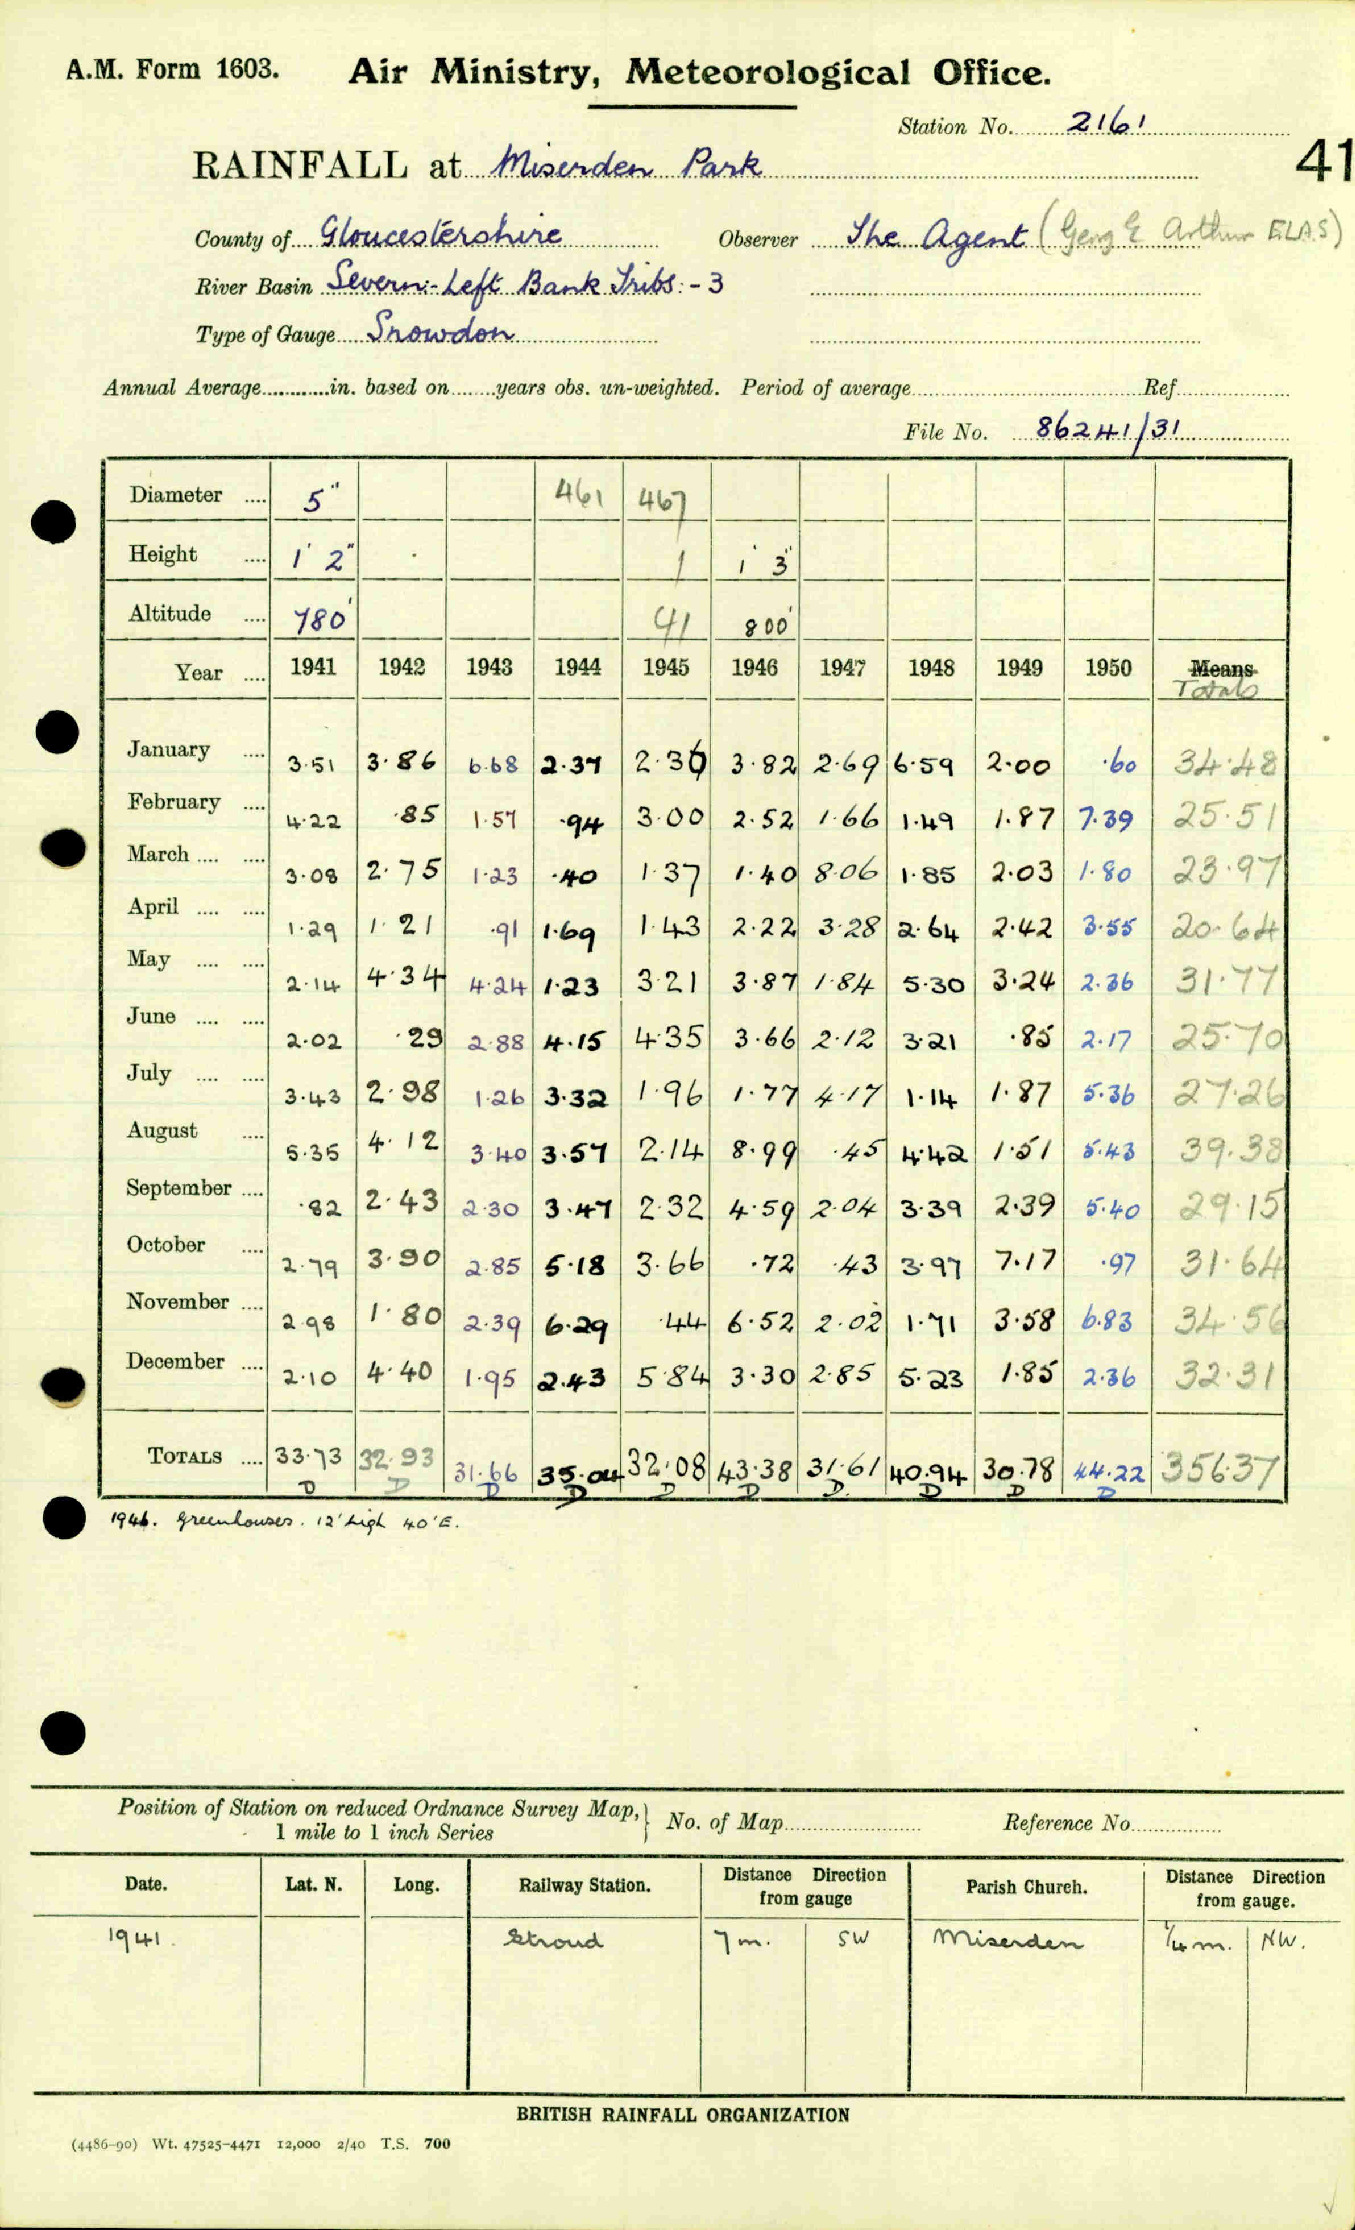 A.M. Form 1603. Air Ministry, Meteorological Office.
Station No. 2161
41
RAINFALL at Miserden Park
County of Gloucestershire Observer The Agent (Geog E Arthur ELAS)
River Basin Severn:- Left Bank Tribs:- 3
Type of Gauge Snowdon
Annual Average in. based on years obs. un-weighted. Period of average Ref
File No. 86241/31
Diameter 5" 461 467
Height 1' 2" 1 1' 3"
Altitude 780' 41 800'
Year 1941 1942 1943 1944 1945 1946 1947 1948 1949 1950 Means
Totals
January 3.51 3.86 6.68 2.37 2.36 3.82 2.69 6.59 2.00 .60 34.48
February 4.22 .85 1.57 .94 3.00 2.52 1.66 1.49 1.87 7.39 25.51
March 3.08 2.75 1.23 .40 1.37 1.40 8.06 1.85 2.03 1.80 23.97
April 1.29 1.21 .91 1.69 1.43 2.22 3.28 2.64 2.42 3.55 20.64
May 2.14 4.34 4.24 1.23 3.21 3.87 1.84 5.30 3.24 2.36 31.77
June 2.02 .29 2.88 4.15 4.35 3.66 2.12 3.21 .85 2.17 25.70
July 3.43 2.98 1.26 3.32 1.96 1.77 4.17 1.14 1.87 5.36 27.26
August 5.35 4.12 3.40 3.57 2.14 8.99 .45 4.42 1.51 5.43 39.38
September .82 2.43 2.30 3.47 2.32 4.59 2.04 3.39 2.39 5.40 29.15
October 2.79 3.90 2.85 5.18 3.66 .72 .43 3.97 7.17 .97 31.64
November 2.98 1.80 2.39 6.29 .44 6.52 2.02 1.71 3.58 6.83 34.56
December 2.10 4.40 1.95 2.43 5.84 3.30 2.85 5.23 1.85 2.36 32.31
TOTALS 33.73 32.93 31.66 35.04 32.08 43.38 31.61 40.94 30.78 44.22 356.37
D D D D D D D D D D
1946. Greenhouses. 12' high 40' E.
Position of Station on reduced Ordnance Survey Map, } No. of Map Reference No
1 mile to 1 inch Series
Date. Lat. N. Long. Railway Station. Distance Direction from gauge Parish Church. Distance Direction from gauge.
1941. Stroud 7 m. SW Miserden 1/4 m. NW.
BRITISH RAINFALL ORGANIZATION
(4486-90) Wt. 47525-4471 12,000 2/40 T.S. 700